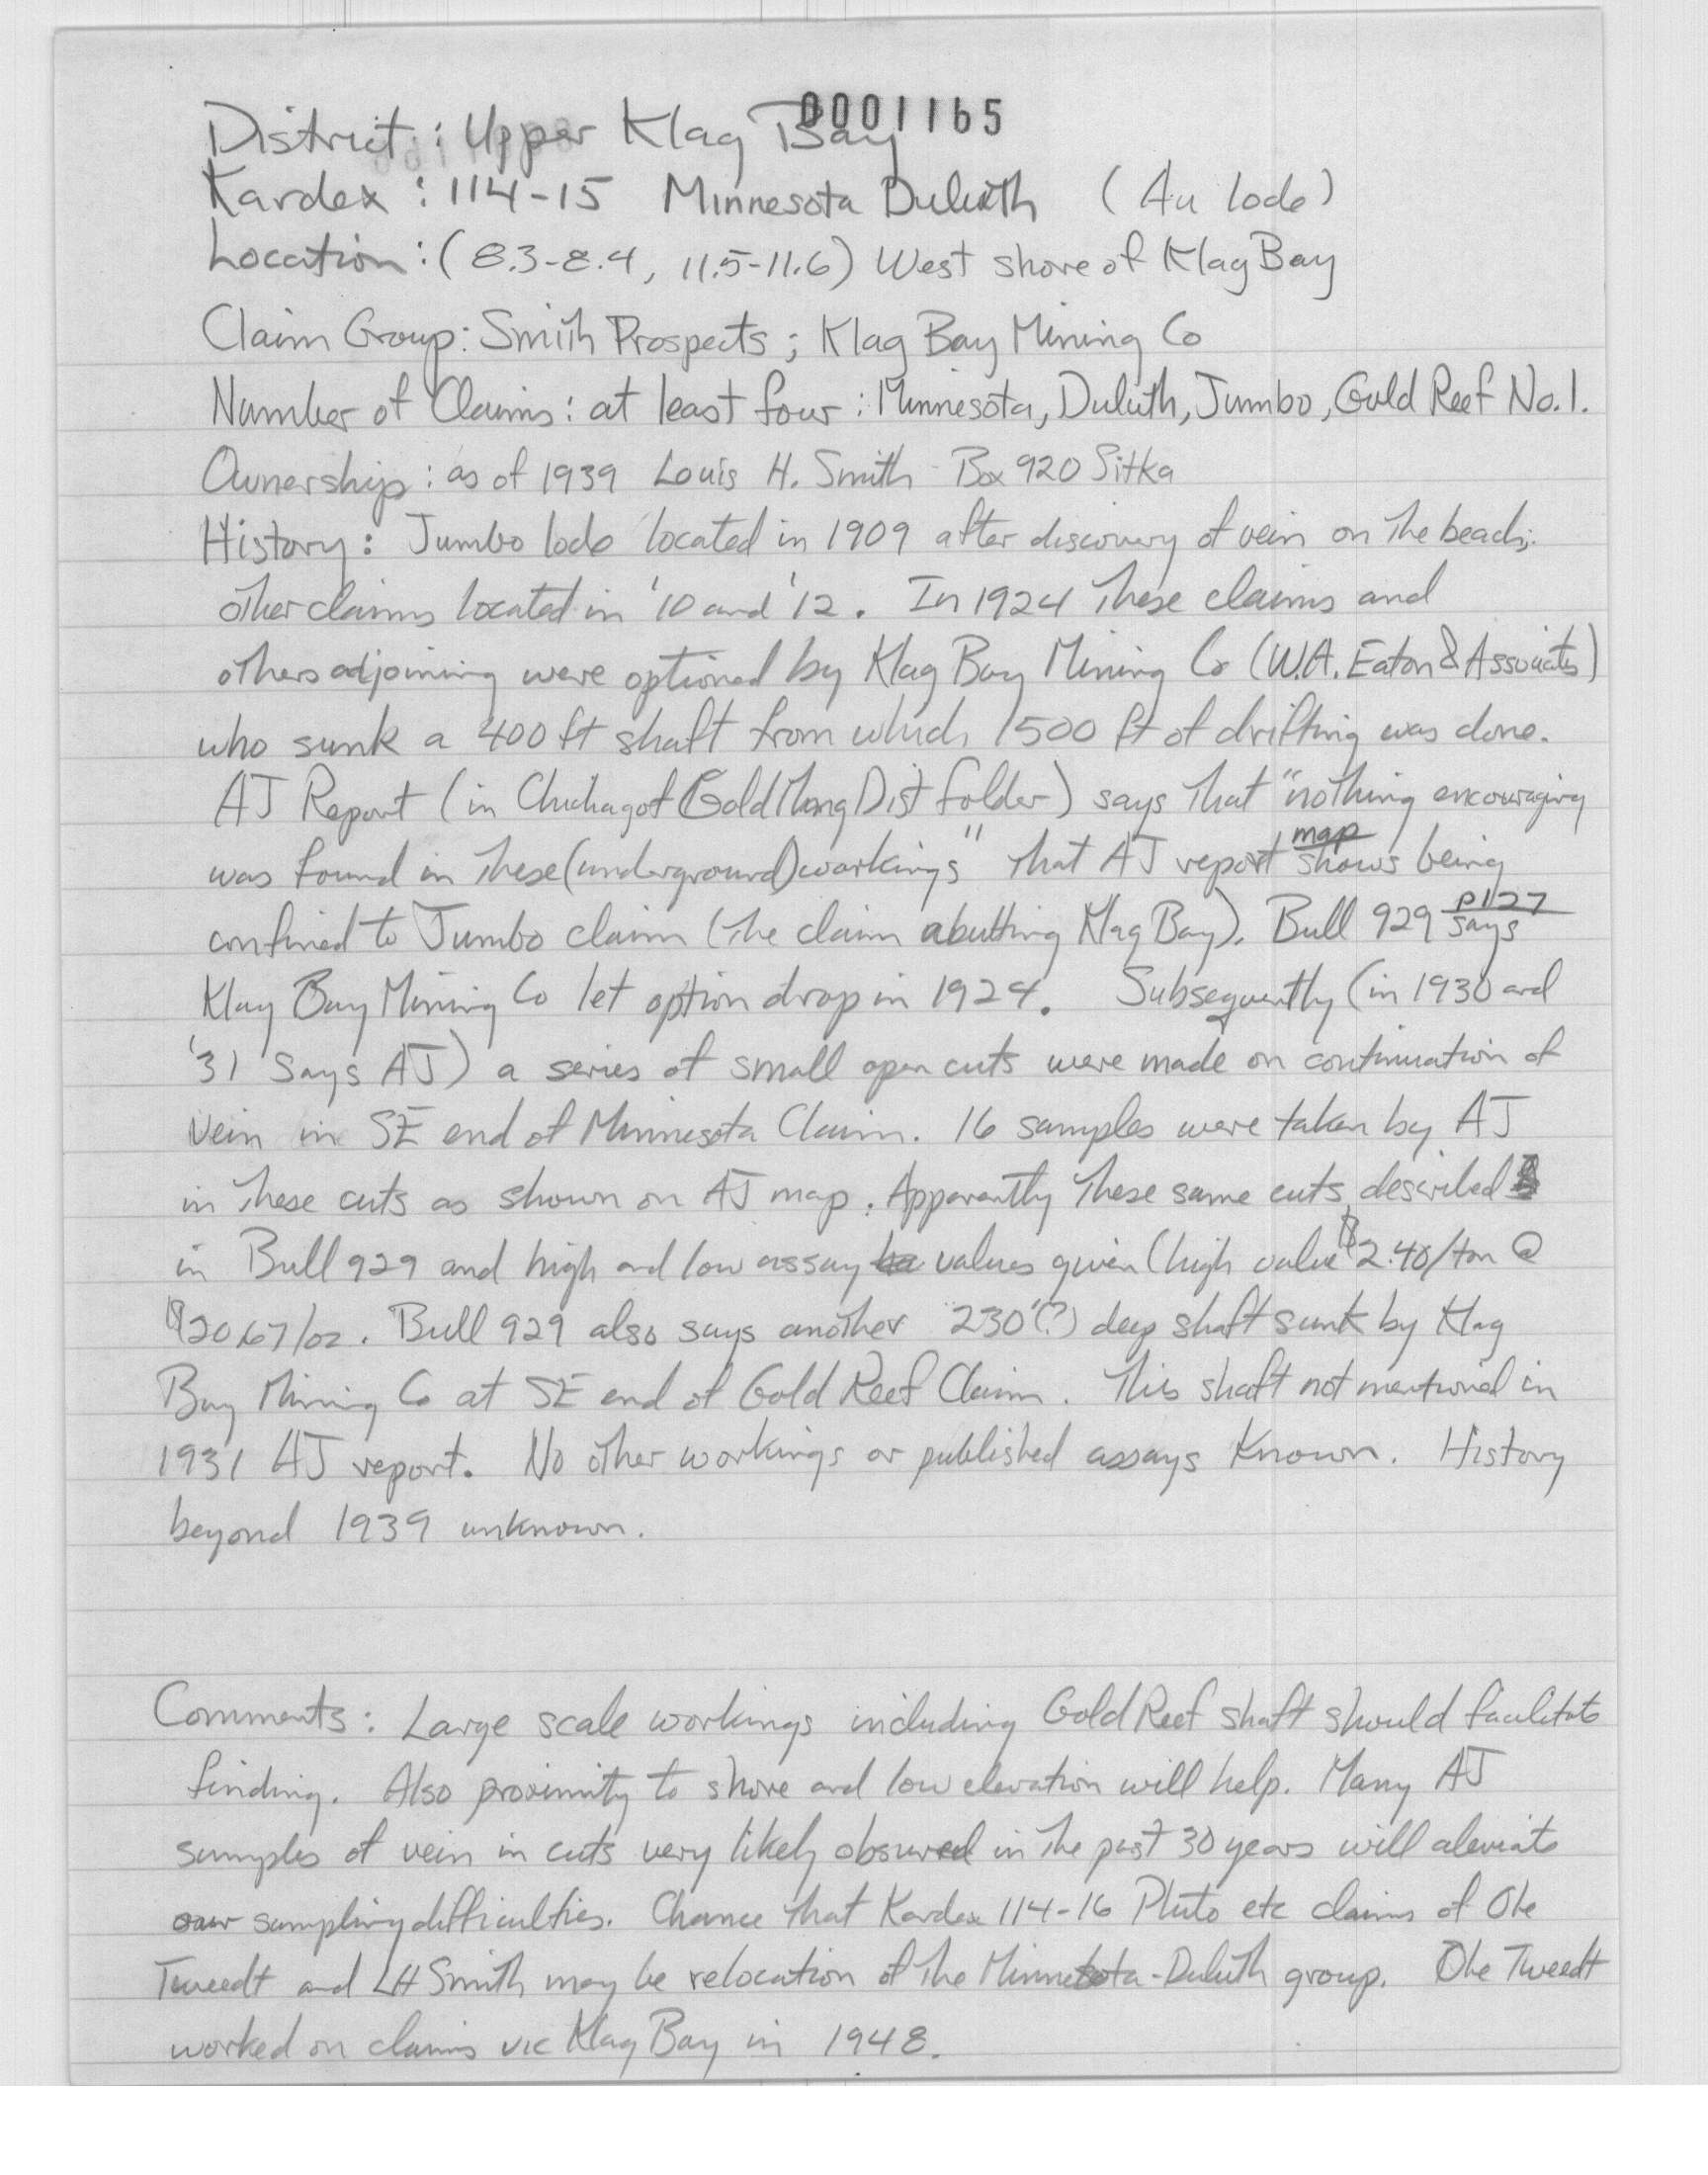 0001165
District: Upper Klag Bay
Kardex: 114-15 Minnesota Duluth (Au lode)
Location: (8.3-8.4, 11.5-11.6) West shore of Klag Bay
Claim Group: Smith Prospects; Klag Bay Mining Co
Number of Claims: at least four: Minnesota, Duluth, Jumbo, Gold Reef No. 1.
Ownership: as of 1939 Louis H. Smith - Box 920 Sitka
History: Jumbo lode located in 1909 after discovery of vein on the beach;
other claims located in '10 and '12. In 1924 these claims and
others adjoining were optioned by Klag Bay Mining Co (W.A. Eaton & Associates)
who sunk a 400 ft shaft from which 1500 ft of drifting was done.
AJ Report (in Chichagof Gold Mng Dist folder) says that "nothing encouraging
was found in these (underground) workings" that AJ report map shows being
confined to Jumbo claim (the claim abutting Klag Bay). Bull 929 p127 says
Klag Bay Mining Co let option drop in 1924. Subsequently (in 1930 and
'31 says AJ) a series of small open cuts were made on continuation of
vein in SE end of Minnesota Claim. 16 samples were taken by AJ
in these cuts as shown on AJ map. Apparently these same cuts described
in Bull 929 and high and low assay values given (high value $2.40/ton @
$20.67/oz. Bull 929 also says another 230'(?) deep shaft sunk by Klag
Bay Mining Co at SE end of Gold Reef Claim. This shaft not mentioned in
1931 AJ report. No other workings or published assays known. History
beyond 1939 unknown.
Comments: Large scale workings including Gold Reef shaft should facilitate
finding. Also proximity to shore and low elevation will help. Many AJ
samples of vein in cuts very likely obsured in the past 30 years will aleviate
our sampling difficulties. Chance that Kardex 114-16 Pluto etc claims of Ole
Tweedt and LH Smith may be relocation of the Minnetota-Duluth group. Ole Tweedt
worked on claims vic Klag Bay in 1948.